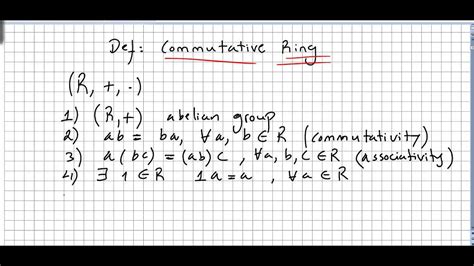 Def: Commutative Ring
(R, +, ·)
1) (R,+) abelian group
2) ab = ba, ∀a, b ∈ R (commutativity)
3) a(bc) = (ab)c, ∀a,b,c ∈ R (associativity)
4) ∃ 1 ∈ R 1a = a, ∀a ∈ R